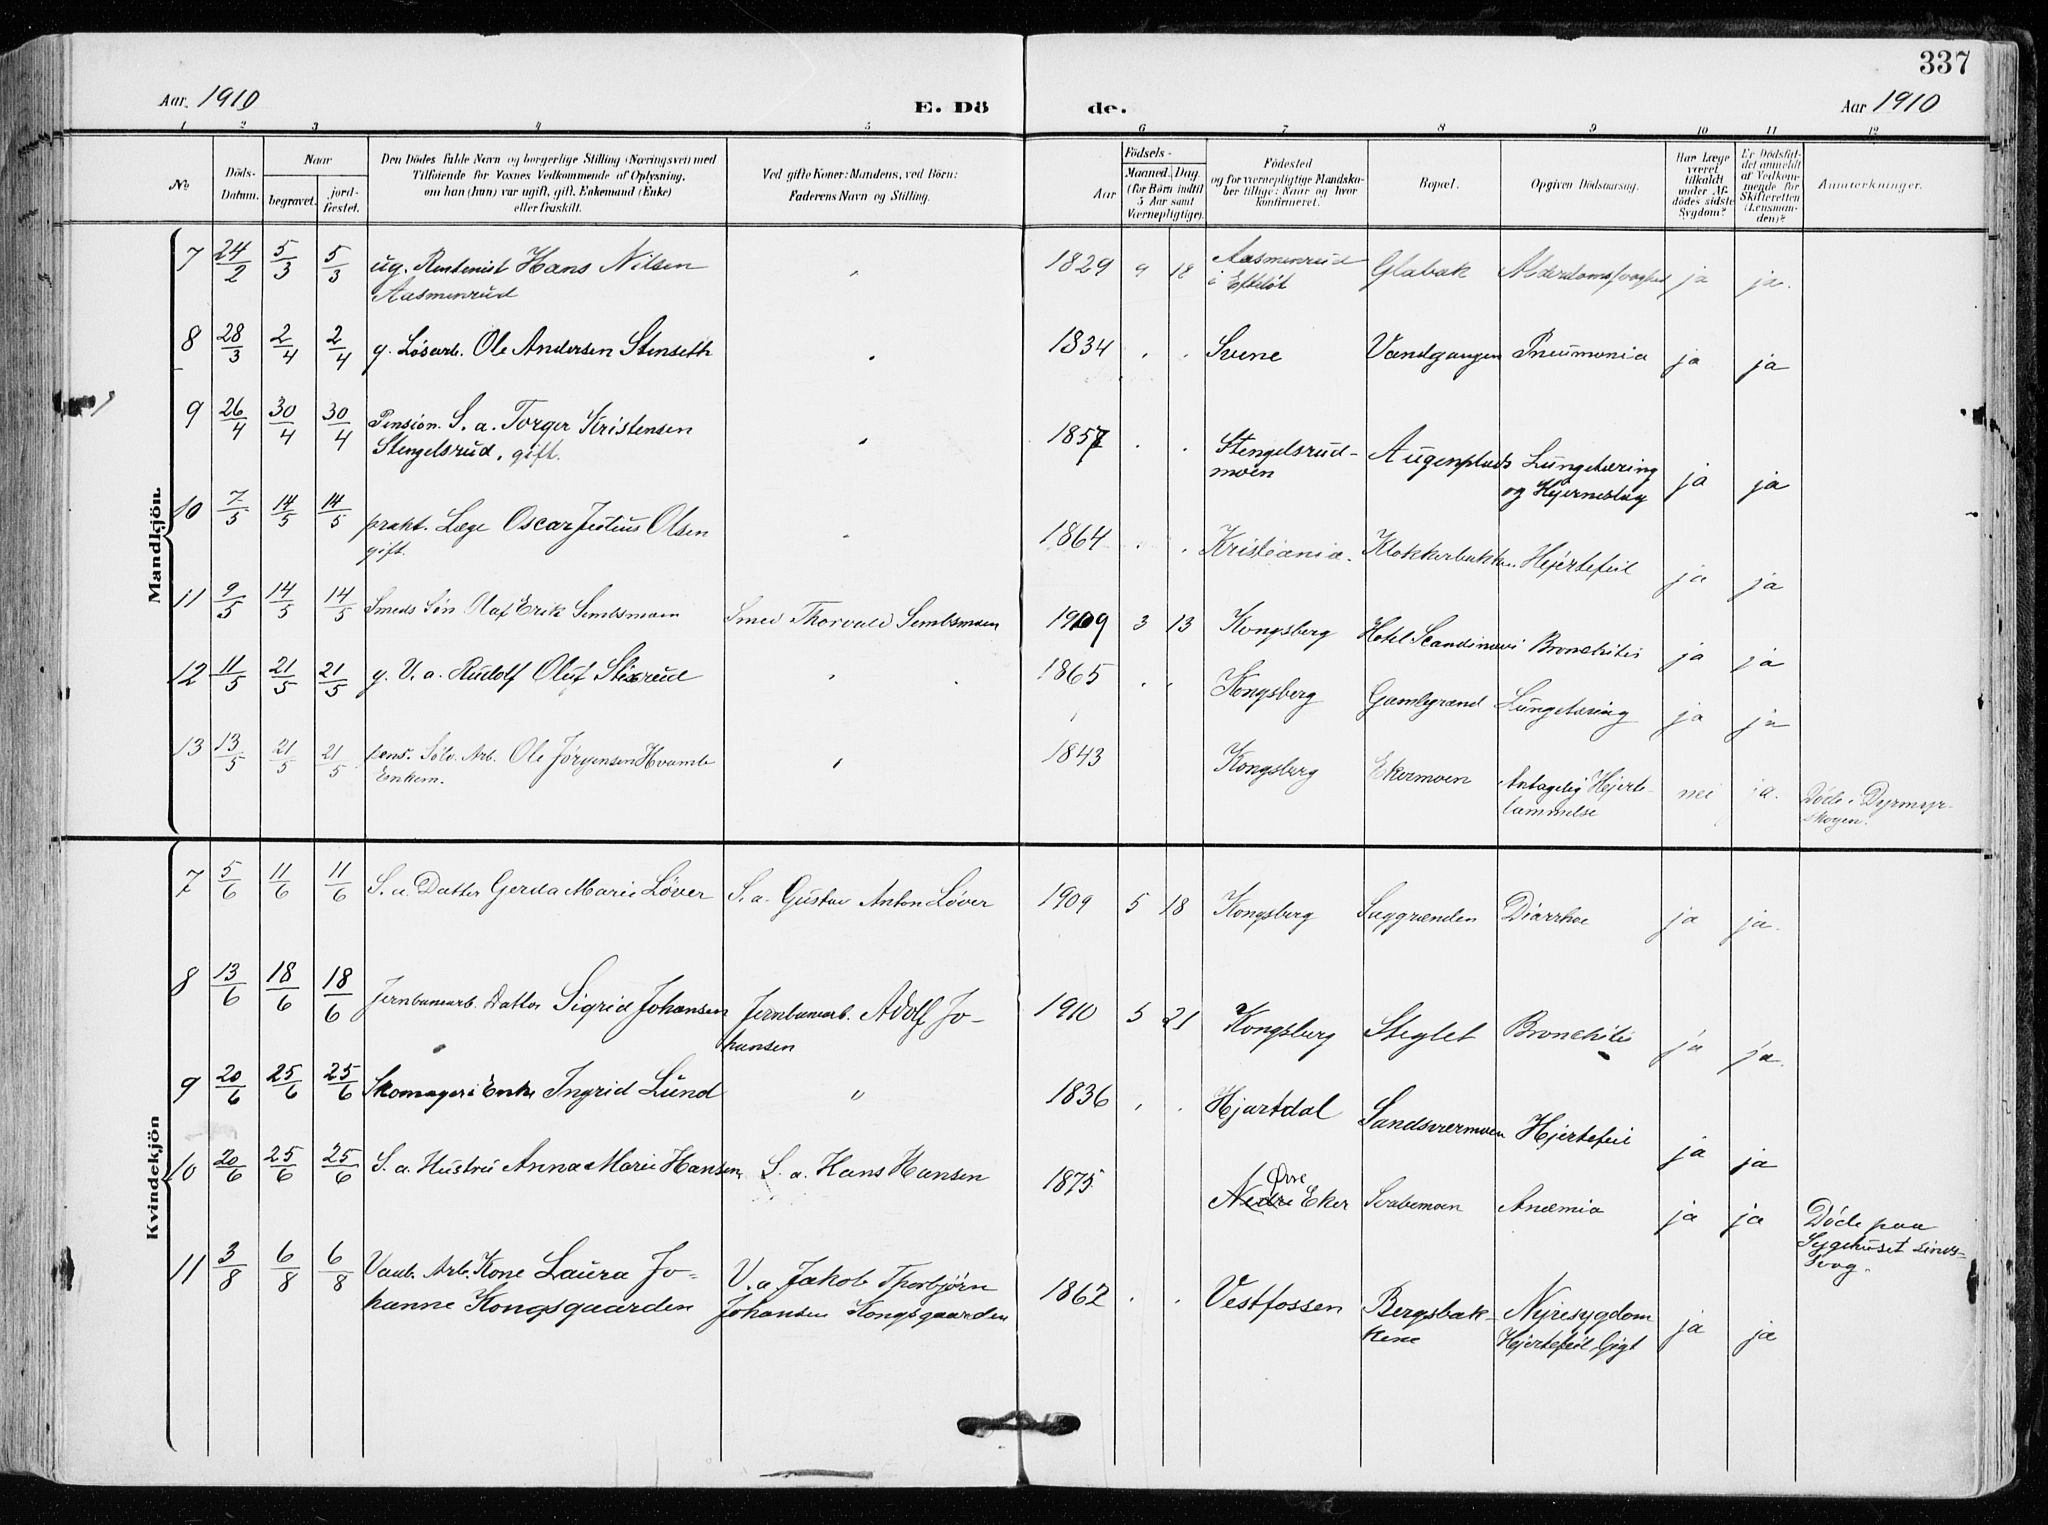 337
Aar. 1910 E. Dö de. Aar 1910
1 2 3 4 5 6 7 8 9 10 11 12
No
Döds-Datum.
Naar begravet. jordfæstet.
Den Dödes fulde Navn og borgerlige Stilling (Næringsvei) med
Tilföiende for Voxnes Vedkommende af Oplysning,
om han (hun) var ugift, gift, Enkemand (Enke)
eller fraskilt.
Ved gifte Koner: Mandens, ved Börn:
Faderens Navn og Stilling.
Aar
Födsels-
Maaned. Dag.
(for Börn indtil
5 Aar samt
Værnepligtige).
Födested
og for værnepligtige Mandskaber tillige: Naar og hvor
konfirmeret.
Bopæl.
Opgiven Dödsaarsag.
Har Læge
været
tilkaldt
under Afdödes sidste
Sygdom?
Er Dödsfaldet anmeldt
af Vedkommende for
Skifteretten
(Lensmanden)?
Anmærkninger.
Mandkjön.
7 24/2 5/3 5/3 ug. Rentenist Hans Nilsen " 1829 9 18 Aasmenrud Glabak Alderdomssvaghed ja ja.
Aasmenrud i Efteløt
8 28/3 2/4 2/4 g. Løsarb. Ole Andersen Stenseth " 1834 " " Svene Vandgangen Pneumonia ja ja
9 26/4 30/4 30/4 Pension. S. a. Torger Kristensen " 1857 " " Stengelsrud- Augenplads Lungetæring ja ja
Stengelsrud, gift. moen og Hjerneslag
10 7/5 14/5 14/5 prakt. Læge Oscar Julius Olsen " 1864 " " Kristiania. Klokkerbakken Hjertefeil ja ja
gift.
11 9/5 14/5 14/5 Smeds Søn Olaf Erik Sembsmoen Smed Thorvald Sembsmoen 1909 3 13 Kongsberg Hotel Scandinavi Bronchitis ja ja
12 11/5 21/5 21/5 g. V. a. Rudolf Oluf Stixrud " 1865 " " Kongsberg Gamlegrænd Lungetæring ja ja
13 13/5 21/5 21/5 pens. Sølv. Arb. Ole Jørgensen Hvamb " 1843 Kongsberg Ekermoen Antagelig Hjerte- nei ja. Døde i Dyrmyr-
Enkem. lammelse skogen.
Kvindekjön
7 5/6 11/6 11/6 S. a. Datter Gerda Marie Løver S. a. Gustav Anton Løver 1909 5 18 Kongsberg Saggrænden Diarrhoe ja ja.
8 13/6 18/6 18/6 Jernbanearb. Datter Sigrid Johansen Jernbanearb. Adolf Jo- 1910 5 21 Kongsberg Steglet Bronchitis ja ja.
hansen
9 20/6 25/6 25/6 Skomager Enke Ingrid Lund " 1836 " " Hjartdal Sandsværmoen Hjertefeil ja ja
10 20/6 25/6 25/6 S. a. Hustru Anna Marie Hansen S. a. Hans Hansen 1875 Nedre Øvre Eker Svabemoen Anæmia ja ja Døde paa
Sygehuset
11 3/8 6/8 6/8 Vaab. Arb. Kone Laura Jo- V. a. Jakob Thorbjørn 1862 " " Vestfossen Bergsbak- Nyresygdom ja ja
hanne Kongsgaarden Johansen Kongsgaarden kene Hjertefeil, Gigt